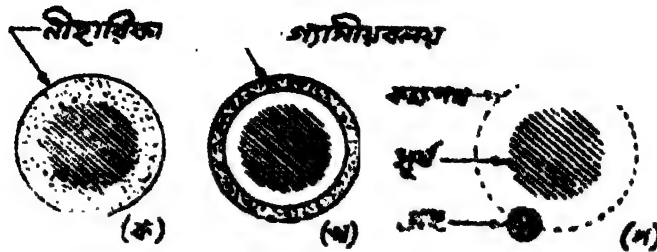 নীহারিকা
গ্যাসীয়বলয়
কক্ষপথ
সূর্য
গ্রহ
(ক)
(খ)
(গ)